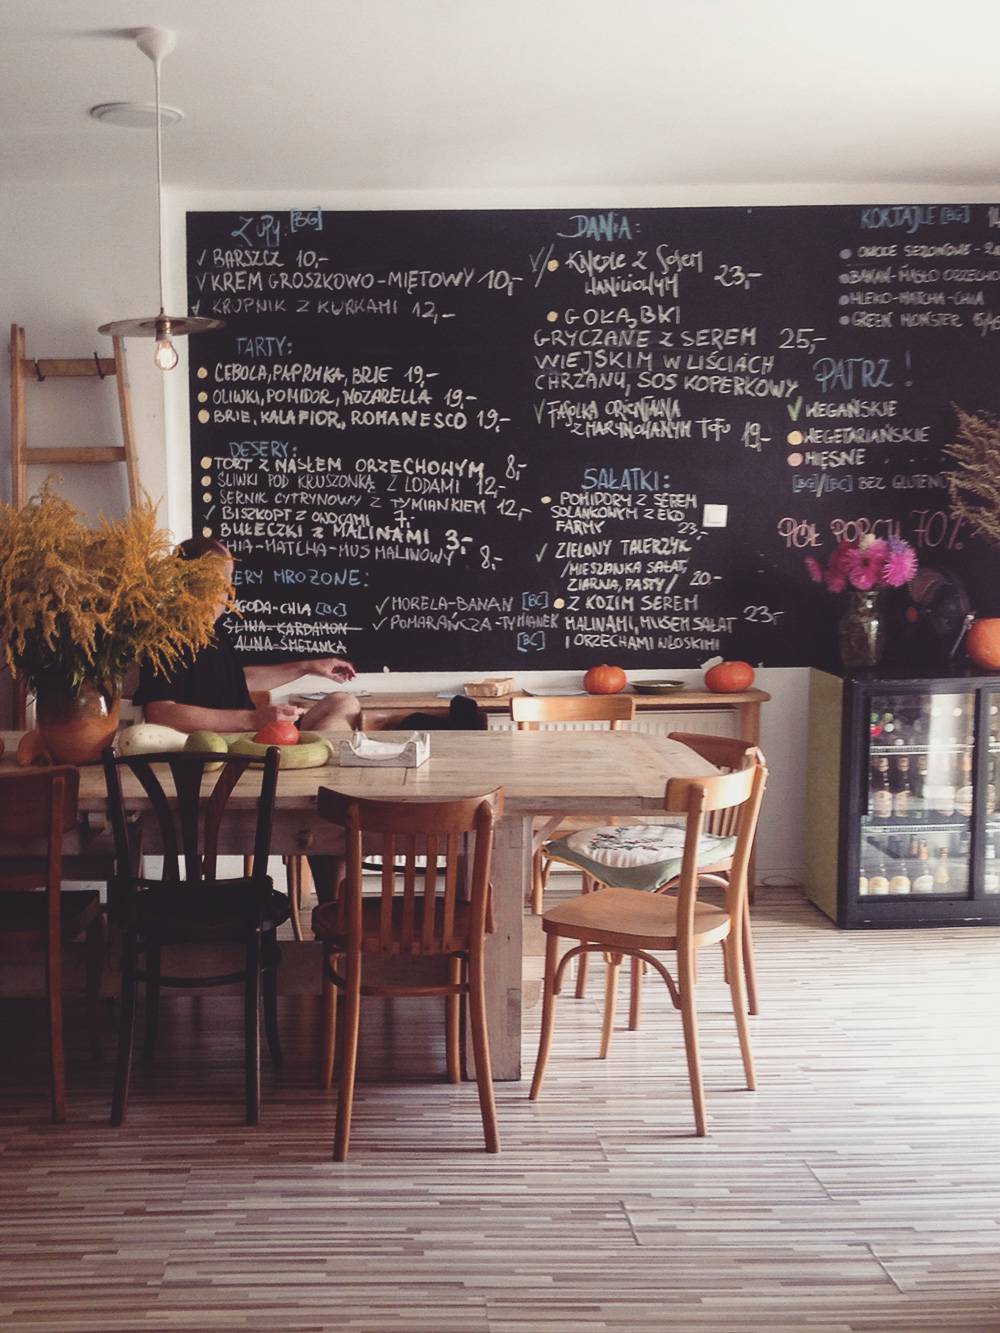 ZUPY [BG]
✓ BARSZCZ 10,-
✓ KREM GROSZKOWO-MIĘTOWY 10,-
✓ KRUPNIK Z KURKAMI 12,-
TARTY:
CEBOLA, PAPRYKA, BRIE 19,-
OLIWKI, POMIDOR, MOZARELLA 19,-
BRIE, KALAFIOR, ROMANESCO 19,-
DESERY:
TORT Z MASŁEM ORZECHOWYM 8,-
ŚLIWKI POD KRUSZONKĄ Z LODAMI 12,-
SERNIK CYTRYNOWY Z TYMIANKIEM 12,-
✓ BISZKOPT Z OWOCAMI 7,-
BUŁECZKI Z MALINAMI 3,-
CHIA-MATCHA-MUS MALINOWY 8,-
MROŻONE:
JAGODA-CHIA [BC]
ŚLIWKA-KARDAMON
MALINA-ŚMETANKA
✓ MORELA-BANAN [BC]
✓ POMARAŃCZA-TYMIANEK
[BC]
DANIA:
✓/ KNEDLE Z SOSEM
WANILIOWYM 23,-
GOŁĄBKI
GRYCZANE Z SEREM 25,-
WIEJSKIM W LIŚCIACH
CHRZANU, SOS KOPERKOWY
✓ FASOLKA ORIENTALNA
Z MARYNOWANYM TOFU 19,-
SAŁATKI:
POMIDORY Z SEREM
SOLANKOWYM Z EKO
FARMY 23,-
✓ ZIELONY TALERZYK
/MIESZANKA SAŁAT,
ZIARNA, PASTY/ 20.-
Z KOZIM SEREM
MALINAMI, MUSEM SAŁAT 23,-
I ORZECHAMI WŁOSKIMI
KOKTAJLE [BG]
OWOCE SEZONOWE
BANAN-MASŁO ORZECHO
MLEKO-MATCHA-CHIA
GREEN MONSTER
PATRZ!
✓ WEGAŃSKIE
WEGETARIAŃSKIE
MIĘSNE
[BG]/[BC] BEZ GLUTENU
PÓŁ PORCJI 70%